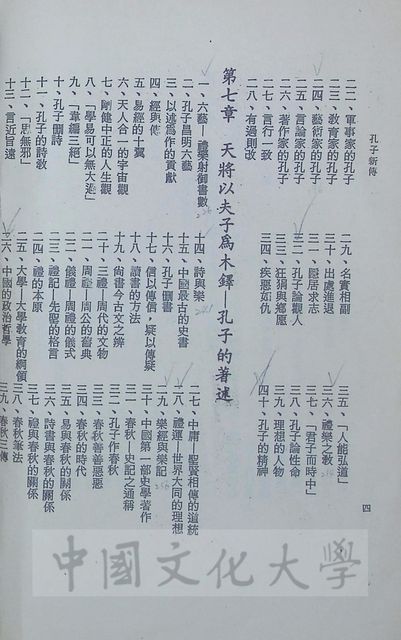 孔子新傳
二二、軍事家的孔子
二三、教育家的孔子
二四、藝術家的孔子
二五、言論家的孔子
二六、著作家的孔子
二七、言行一致
二八、有過則改
二九、名實相副
三十、出處進退
三一、隱居求志
三二、孔子論觀人
三三、狂狷與鄉愿
三四、疾惡如仇
三五、「人能弘道」
三六、禮樂之教
三七、「君子而時中」
三八、孔子論性命
三九、理想的人物
四十、孔子的精神
第七章　天將以夫子為木鐸—孔子的著述
一、六藝—禮樂射御書數
二、孔子昌明六藝
三、以述為作的貢獻
四、經與傳
五、易經的十翼
六、天人合一的宇宙觀
七、剛健中正的人生觀
八、「學易可以無大過」
九、「韋編三絕」
十、孔子刪詩
十一、孔子的詩教
十二、「思無邪」
十三、言近旨遠
十四、詩與樂
十五、中國最古的史書
十六、孔子刪書
十七、信以傳信，疑以傳疑
十八、讀書的方法
十九、尚書今古文之辨
二十、三禮—周代的文物
二一、周禮—周公的舊典
二二、儀禮—周禮的儀式
二三、禮記—先聖的格言
二四、禮的本原
二五、大學—大學教育的綱領
二六、中國的政治哲學
二七、中庸—聖賢相傳的道統
二八、禮運—世界大同的理想
二九、樂經與樂記
三十、中國第一部史學著作
三一、春秋—史記之通稱
三二、孔子作春秋
三三、春秋善善惡惡
三四、春秋的時代
三五、易與春秋的關係
三六、詩書與春秋的關係
三七、禮與春秋的關係
三八、春秋筆法
三九、春秋三傳
四
中國文化大學